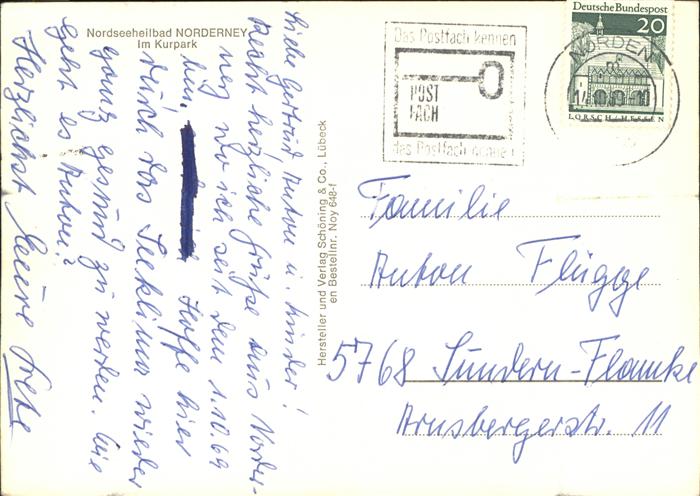 Nordseeheilbad NORDERNEY
Im Kurpark
Liebe Gertrud Anton u. Kinder!
Recht herzliche Grüße aus Norder-
ney wo ich seit dem 1.10.69
bin. Hoffe hier
durch das Seeklima wieder
ganz gesund zu werden. Wie
geht es Anton?
Herzlichst Eure Grete
Hersteller und Verlag Schöning & Co., Lübeck
en Bestellnr. Noy 648-f
Das Postfach kennen
POST
FACH
das Postfach nennen
NORDEN
Deutsche Bundespost
20
LORSCH/HESSEN
Familie
Anton Flügge
5768 Sundern-Flamke
Arnsbergerstr. 11